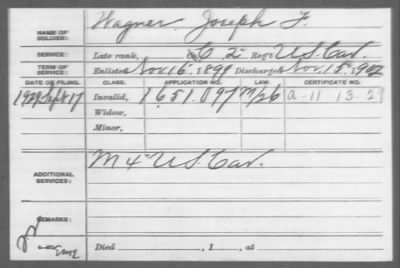 NAME OF SOLDIER: Wagner, Joseph F.
SERVICE: Late rank, C 2" Reg't U.S. Cav.
TERM OF SERVICE: Enlisted Nov 16" 1899 Discharged Nov. 15", 1902
DATE OF FILING. CLASS. APPLICATION NO. LAW. CERTIFICATE NO.
Sept 17 Invalid, 1651.097 A-11-13-2
Widow,
Minor,
ADDITIONAL SERVICES: M 4" U.S. Cav.
REMARKS:
Died , 1 , at